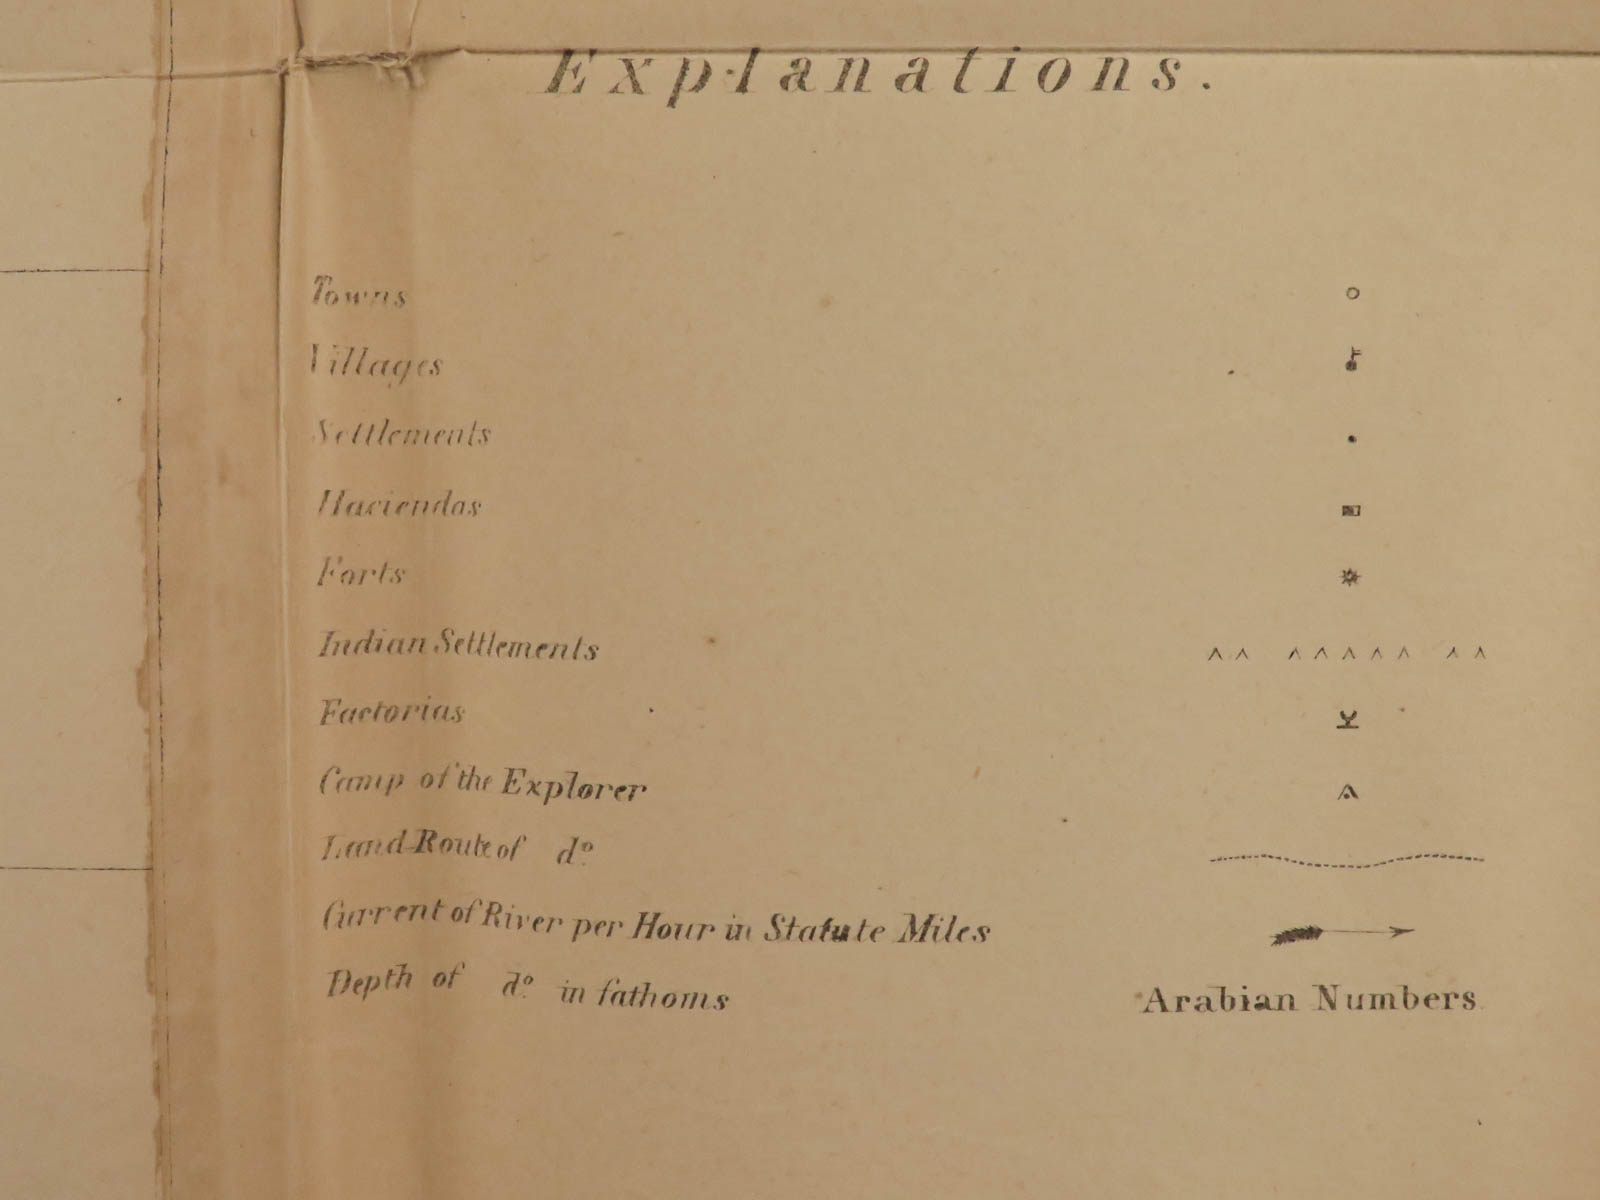 Explanations.
Towns
Villages
Settlements
Haciendas
Forts
Indian Settlements
Factorias
Camp of the Explorer
Land-Route of dº
Current of River per Hour in Statute Miles
Depth of dº in fathoms Arabian Numbers